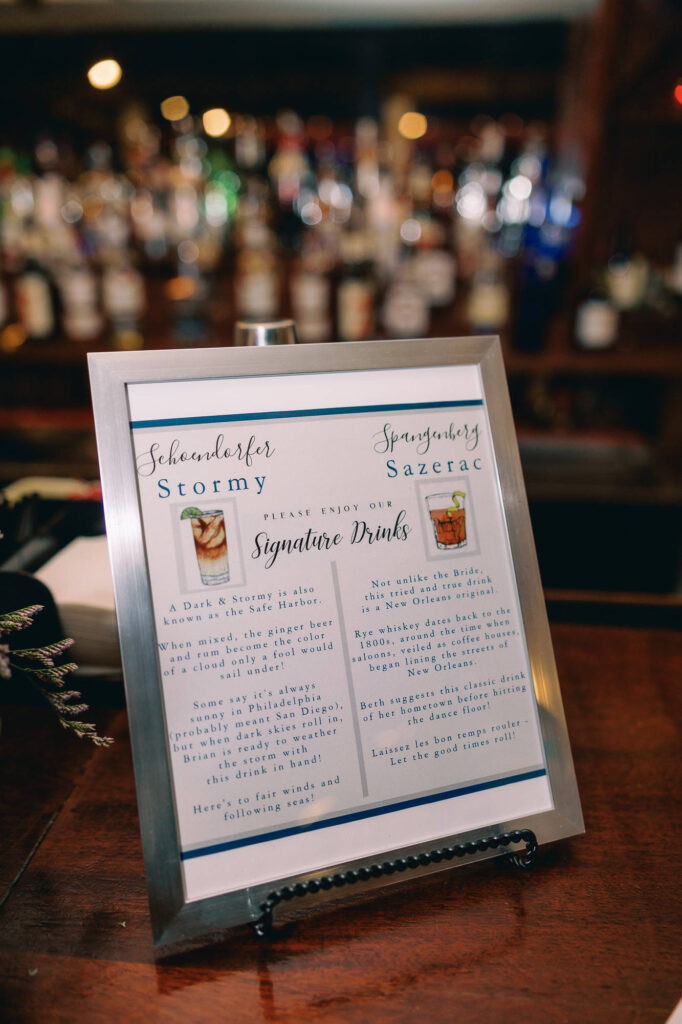 Schoendorfer
Stormy
Spangenberg
Sazerac
PLEASE ENJOY OUR
Signature Drinks
A Dark & Stormy is also
known as the Safe Harbor.
When mixed, the ginger beer
and rum become the color
of a cloud only a fool would
sail under!
Some say it's always
sunny in Philadelphia
(probably meant San Diego),
but when dark skies roll in,
Brian is ready to weather
the storm with
this drink in hand!
Here's to fair winds and
following seas!
Not unlike the Bride,
this tried and true drink
is a New Orleans original.
Rye whiskey dates back to the
1800s, around the time when
saloons, veiled as coffee houses,
began lining the streets of
New Orleans.
Beth suggests this classic drink
of her hometown before hitting
the dance floor!
Laissez les bon temps rouler -
Let the good times roll!